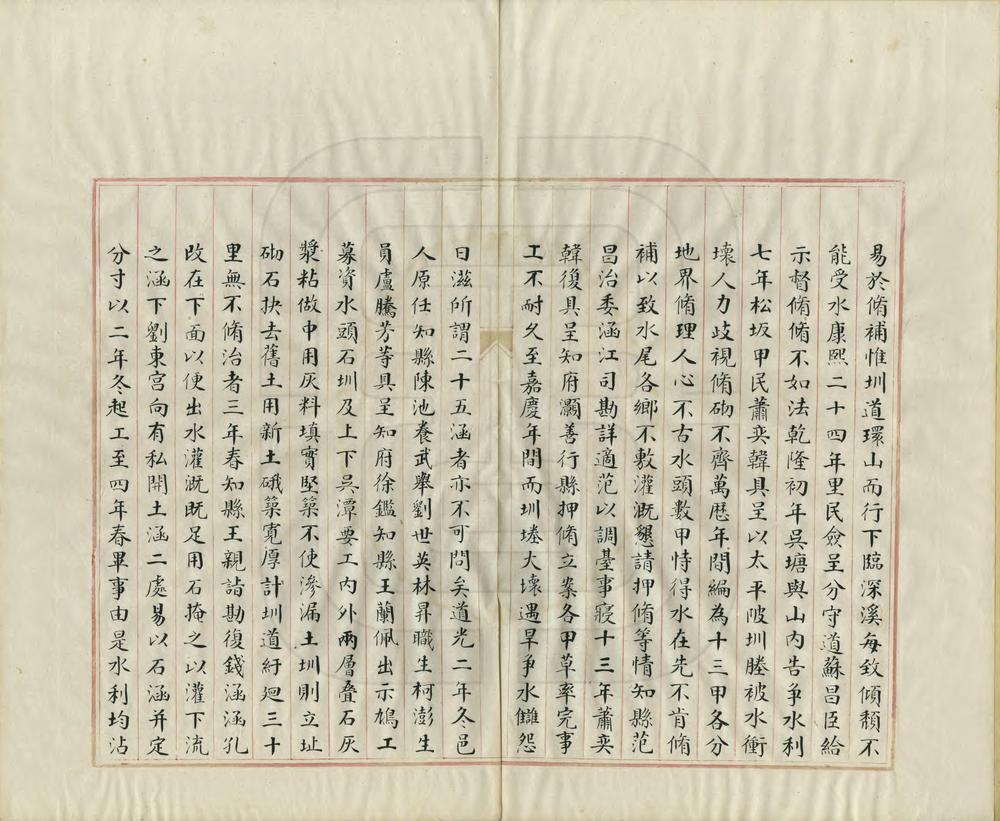 易於脩補惟圳道環山而行下臨深溪每致傾頽不
能受水康熙二十四年里民僉呈分守道蘇昌臣給
示督脩脩不如法乾隆初年吳塘與山內告爭水利
七年松坂甲民蕭奕韓具呈以太平陂圳塍被水衝
壞人力歧視脩砌不齊萬歷年間編為十三甲各分
地界脩理人心不古水頭數甲恃得水在先不肯脩
補以致水尾各鄉不敷灌溉懇請押脩等情知縣范
昌治委涵江司勘詳適范以調臺事寢十三年蕭奕
韓復具呈知府灝善行縣押脩立案各甲草率完事
工不耐久至嘉慶年間而圳塍大壞遇旱爭水讎怨
日滋所謂二十五涵者亦不可問矣道光二年冬邑
人原任知縣陳池養武舉劉世英林昇職生柯澎生
員盧騰芳等具呈知府徐鑑知縣王蘭佩出示鳩工
募資水頭石圳及上下吳潭要工內外兩層叠石灰
漿粘做中用灰料填實堅築不使滲漏土圳則立址
砌石抉去舊土用新土硪築寬厚計圳道紆廻三十
里無不脩治者三年春知縣王親詣勘復錢涵涵孔
改在下面以便出水灌溉既足用石掩之以灌下流
之涵下劉東宮向有私開土涵二處易以石涵并定
分寸以二年冬起工至四年春畢事由是水利均沾